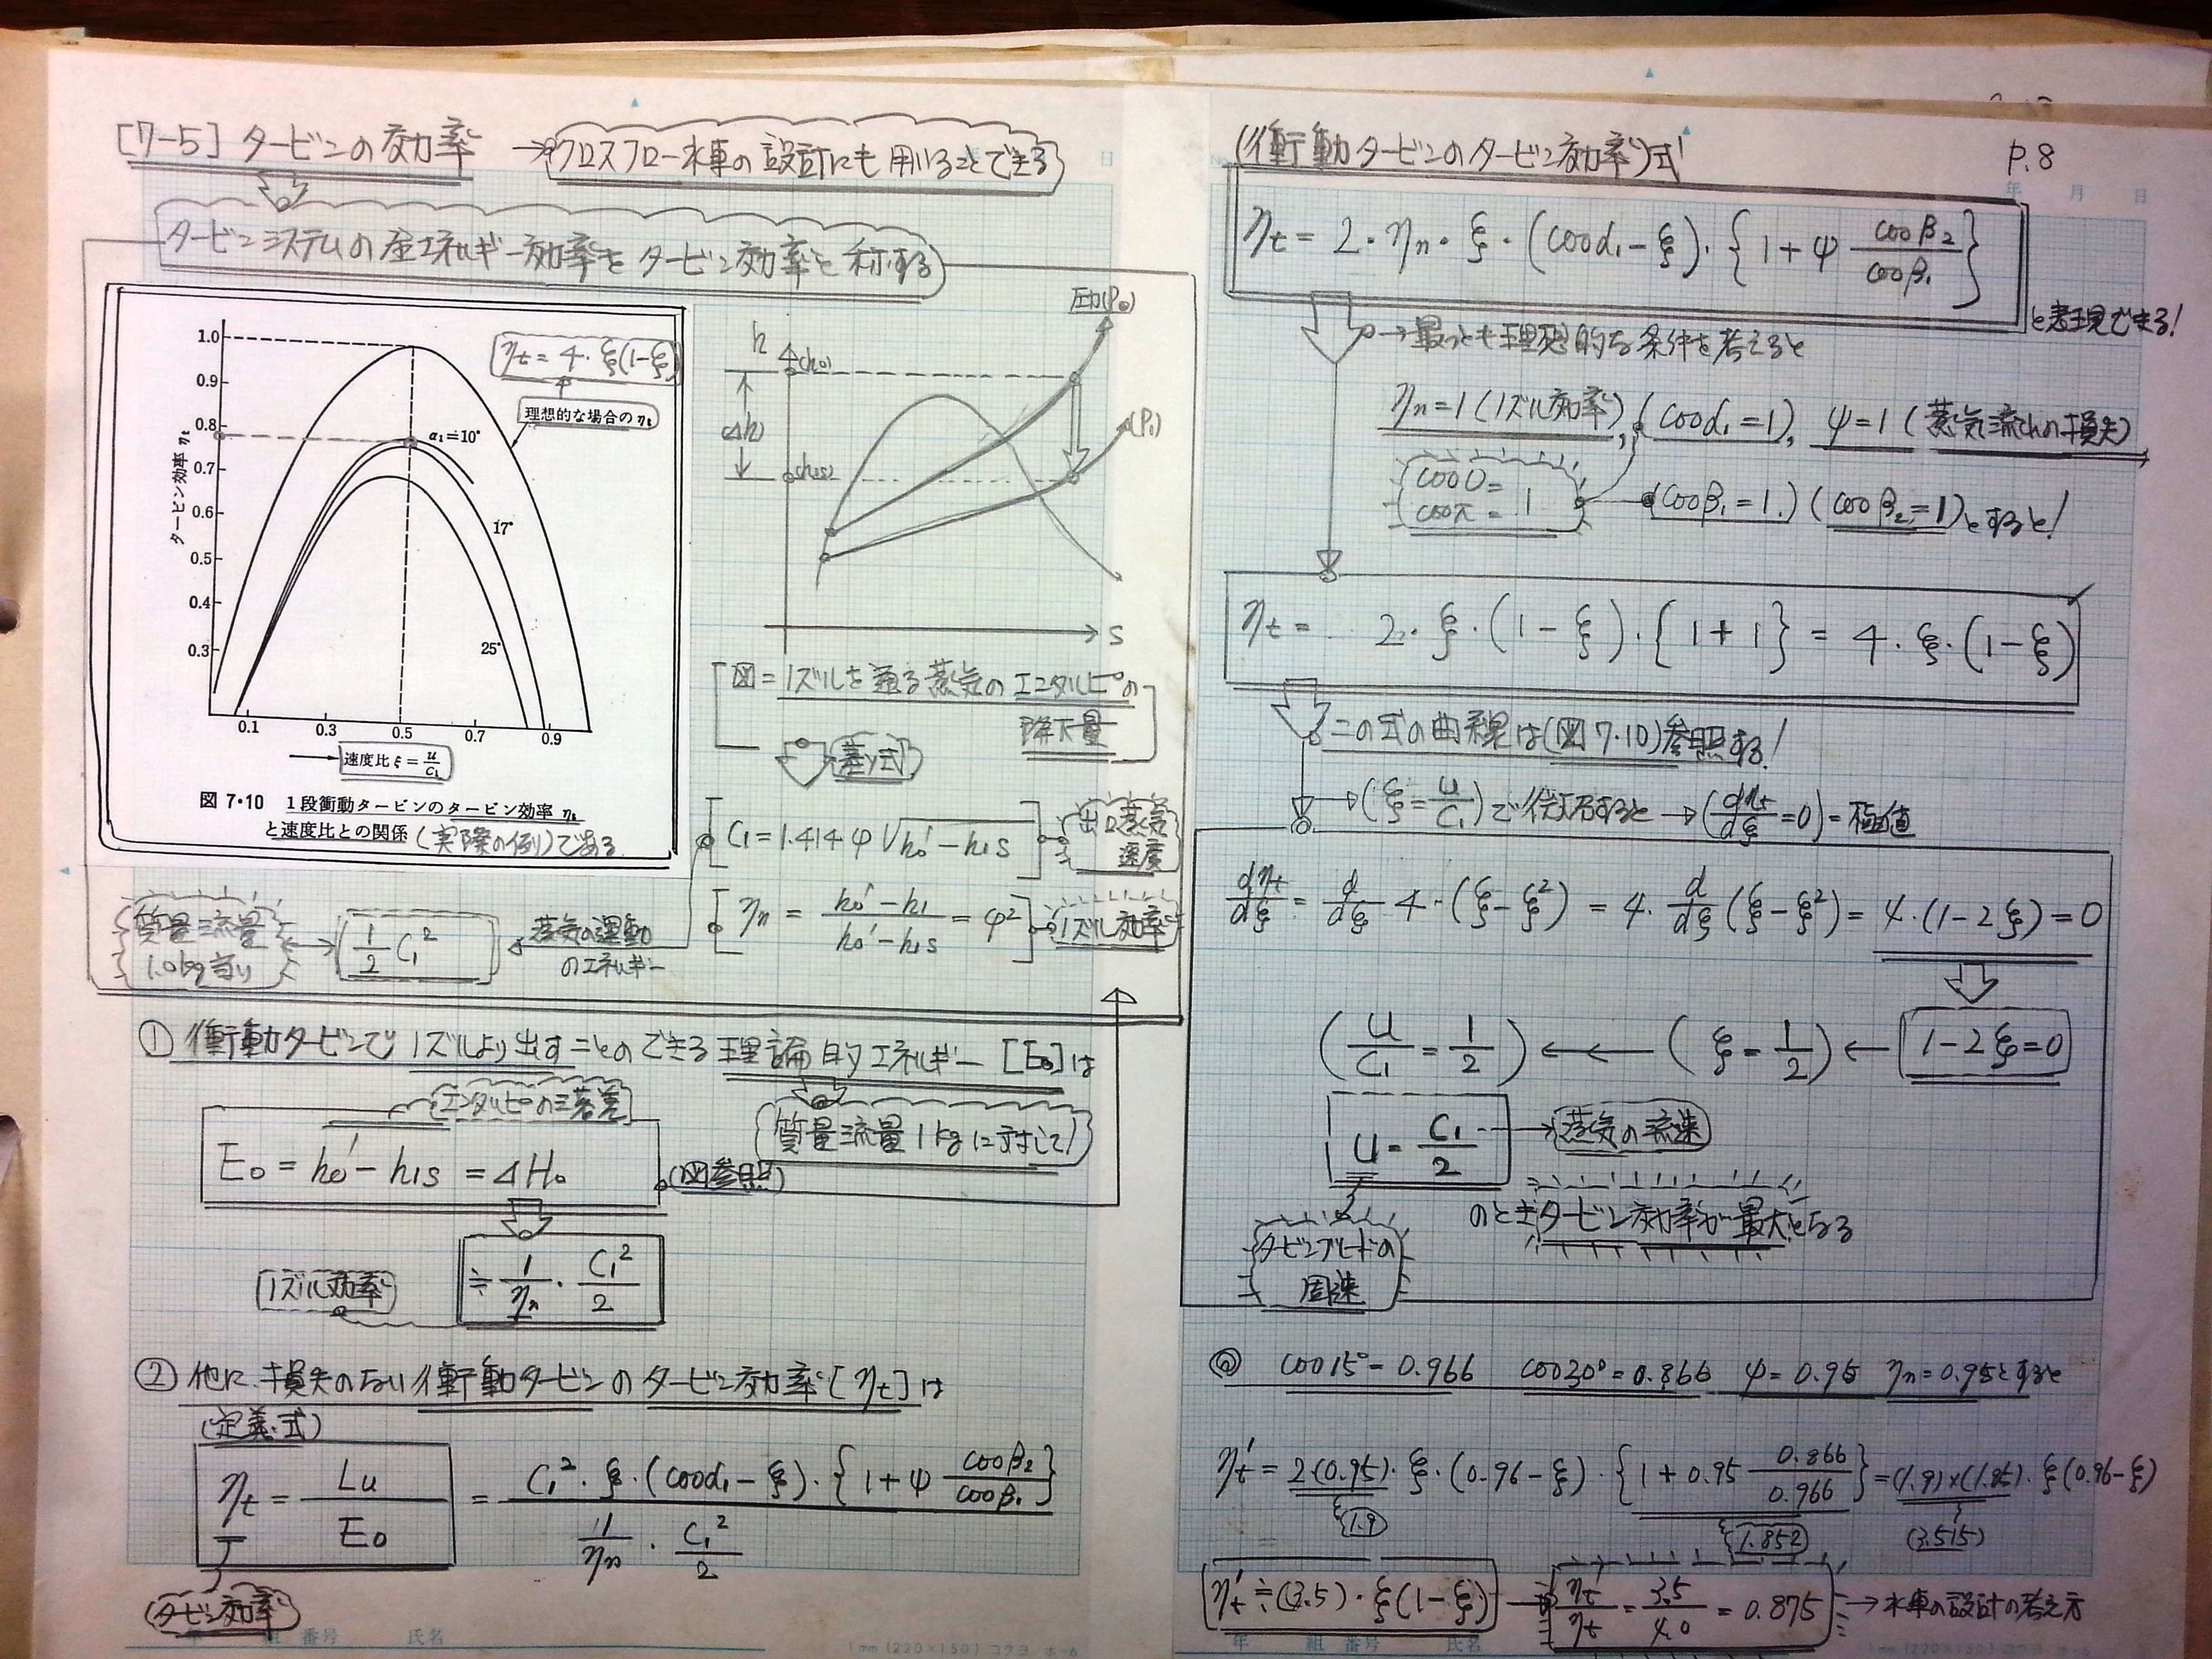 [7-5] タービンの効率 → クロスフロー水車の設計にも用いることできる
タービンシステムの全エネルギー効率をタービン効率と称する
1.0
0.9
0.8
0.7
0.6
0.5
0.4
0.3
タービン効率 ηt
ηt = 4・ξ(1-ξ)
理想的な場合の ηt
α₁=10°
17°
25°
0.1 0.3 0.5 0.7 0.9
→ 速度比 ξ = u/C₁
図 7・10 1段衝動タービンのタービン効率 ηt
と速度比との関係 (実際の例)である
h
圧力(P₀)
(h₀)
(Δh)
(P₁)
S
図=ノズルを通る蒸気のエンタルピーの
降下量
C₁ = 1.414 φ √h₀′-h₁s
出口蒸気
速度
ηn = (h₀′-h₁)/(h₀′-h₁s) = φ²
ノズル効率
質量流量
1.0kg当り
1/2 C₁²
蒸気の運動
のエネルギー
① 衝動タービンでノズルより出すことのできる理論的エネルギー [E₀]は
エンタルピーの落差
質量流量 1kgに対して
E₀ = h₀′-h₁s = ΔH₀
(図参照)
ノズル効率
≒ 1/ηn・C₁²/2
② 他に損失のない衝動タービンのタービン効率[ηt]は
(定義式)
ηt = Lu/E₀ = C₁²・ξ・(cosα₁-ξ)・{1+ψ cosβ₂/cosβ₁} / (1/ηn・C₁²/2)
タービン効率
年 組 番号 氏名
1mm(220×150) コクヨ ホ-6
(衝動タービンのタービン効率)式
P.8
年 月 日
ηt = 2・ηn・ξ・(cosα₁-ξ)・{1+ψ cosβ₂/cosβ₁}
と表現できる!
→最っとも理想的な条件を考えると
ηn=1(ノズル効率), (cosα₁=1), ψ=1(蒸気流れの損失)
cos0=
cosπ= 1
(cosβ₁=1.) (cosβ₂=1)とすると!
ηt = 2・ξ・(1-ξ)・{1+1} = 4・ξ・(1-ξ)
この式の曲線は(図7・10)参照する!
→(ξ=u/C₁)で微分すると→(dηt/dξ=0)=極値
dηt/dξ = d/dξ 4・(ξ-ξ²) = 4・d/dξ(ξ-ξ²) = 4・(1-2ξ)=0
(u/C₁ = 1/2) ←← (ξ = 1/2) ← 1-2ξ=0
u = C₁/2 → 蒸気の流速
のときタービン効率が最大となる
タービンブレードの
周速
◎ cos15°=0.966 cos30°=0.866 ψ=0.95 ηn=0.95とすると
ηt′ = 2・(0.95)・ξ・(0.96-ξ)・{1+0.95 0.866/0.966} = (1.9)×(1.85)・ξ(0.96-ξ)
1.9
1.852
(3.515)
ηt′ ≒ (3.5)・ξ(1-ξ) → ηt′/ηt = 3.5/4.0 = 0.875 → 水車の設計の考え方
年 組 番号 氏名